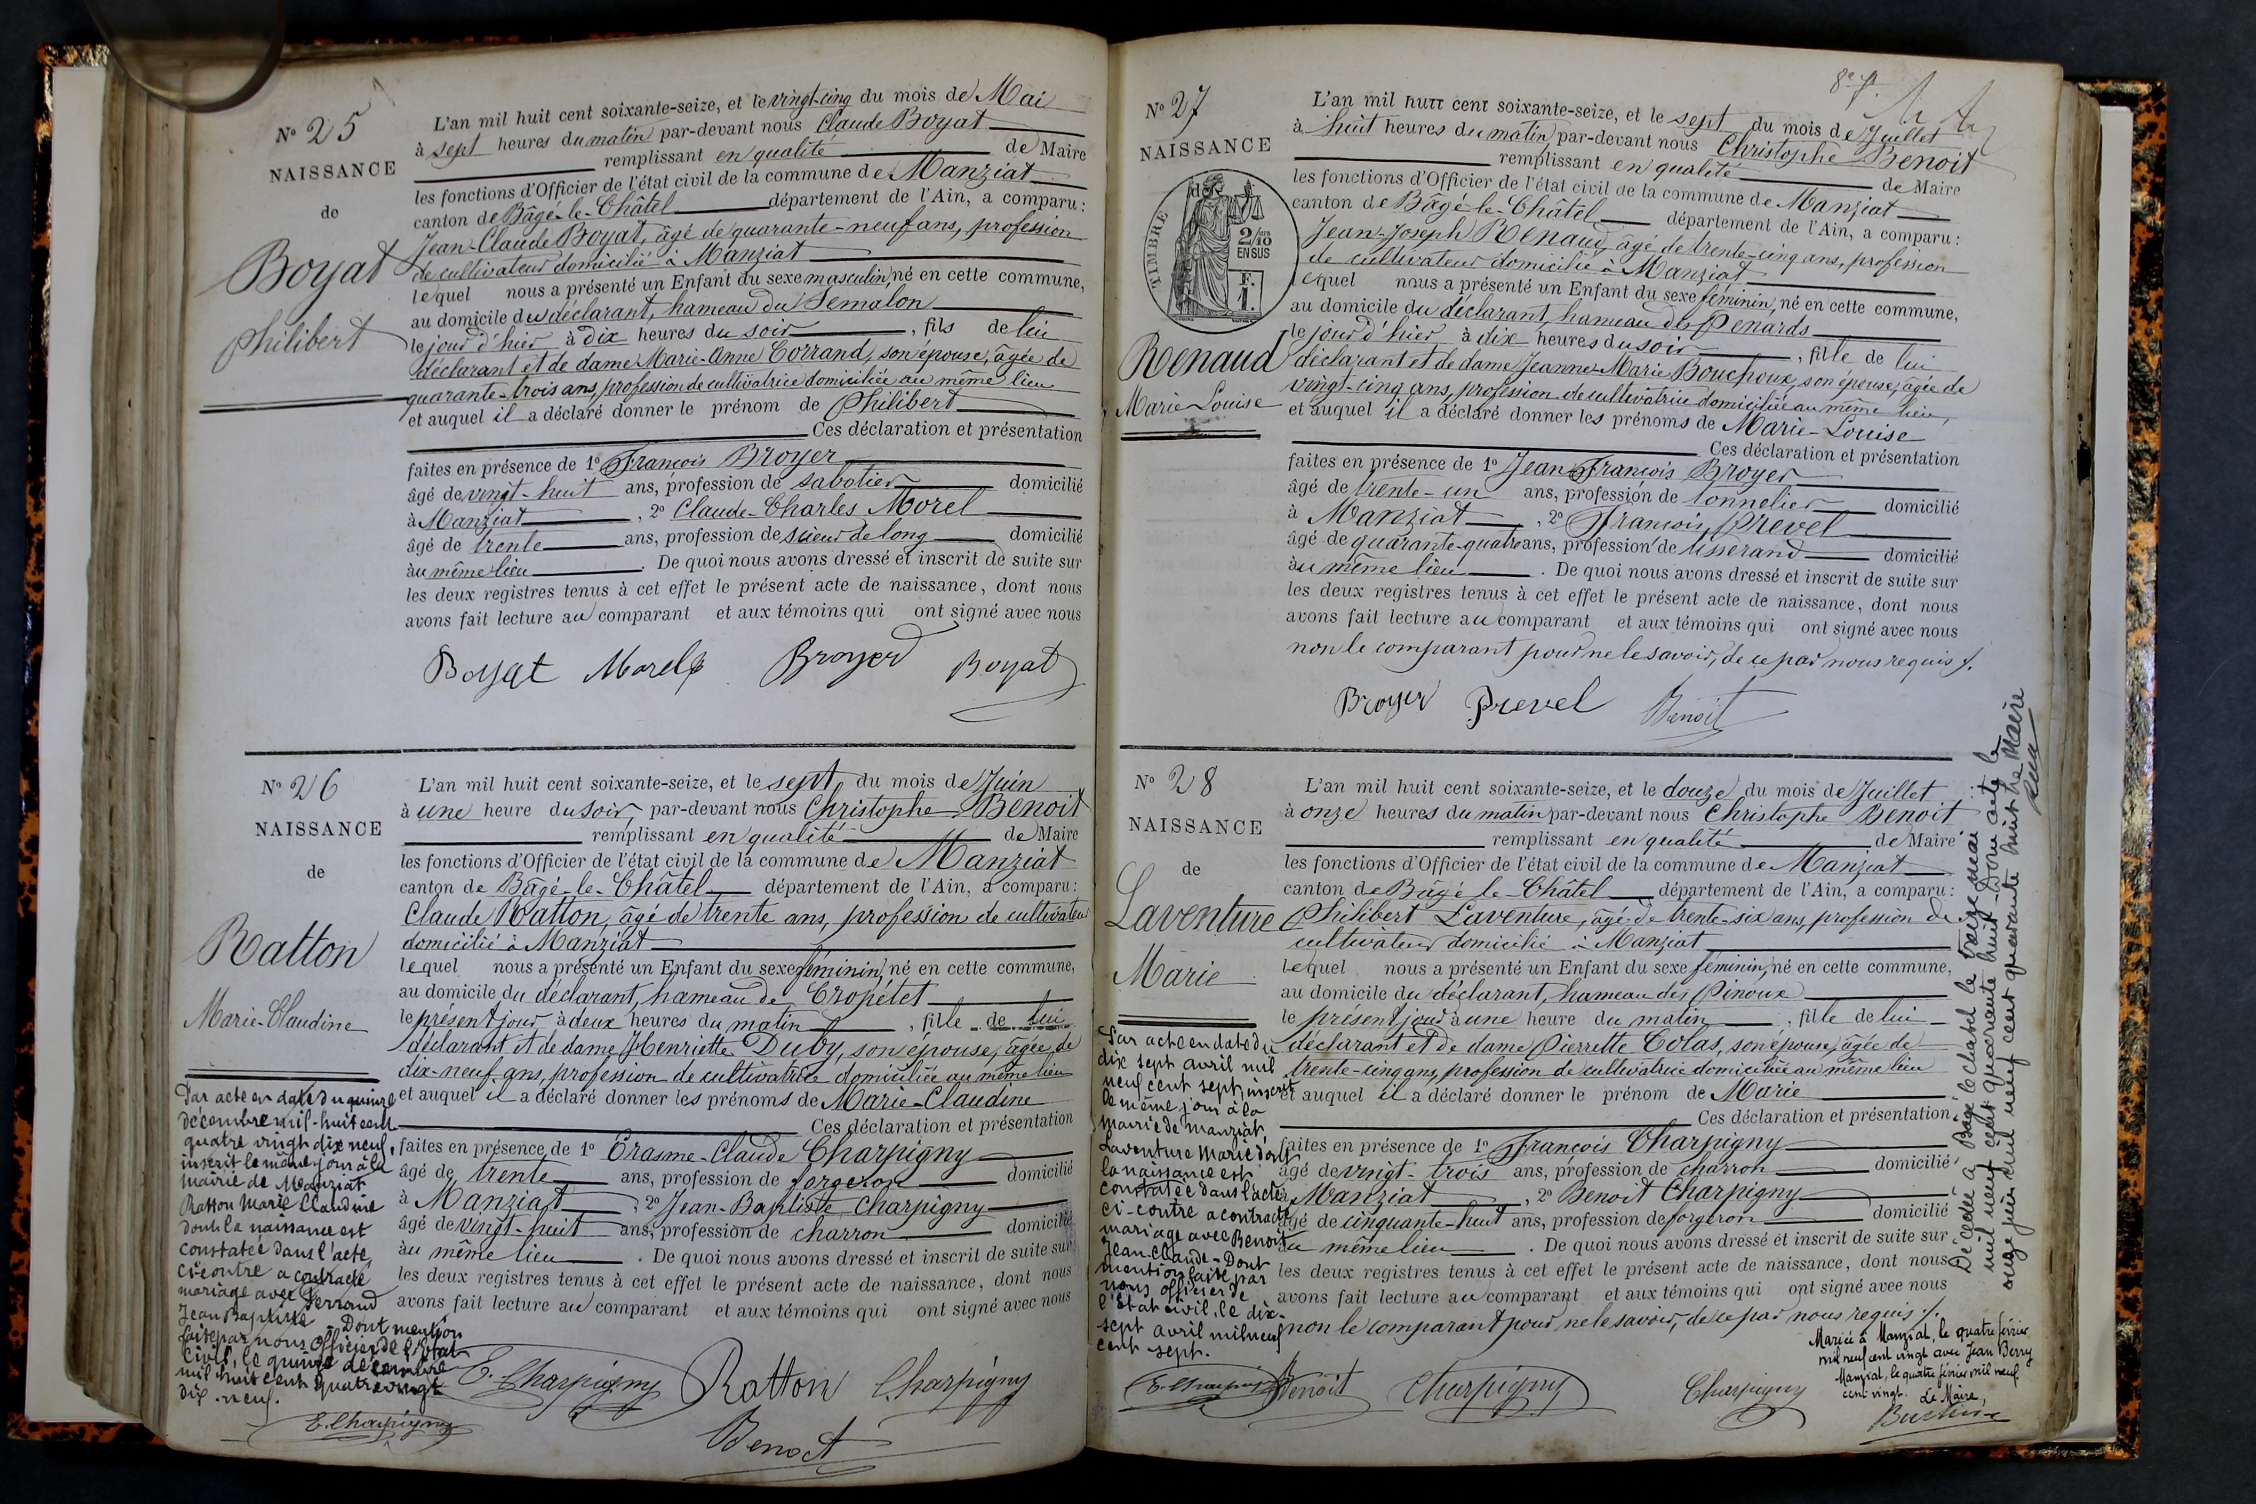 N° 25
NAISSANCE
de
Boyat
Philibert
L'an mil huit cent soixante-seize, et le vingt-cinq du mois de Mai
à sept heures du matin par-devant nous Claude Boyat
remplissant en qualité de Maire
les fonctions d'Officier de l'état civil de la commune de Manziat
canton de Bâgé-le-Châtel département de l'Ain, a comparu :
Jean-Claude Boyat, âgé de quarante-neuf ans, profession
de cultivateur domicilié à Manziat
lequel nous a présenté un Enfant du sexe masculin, né en cette commune,
au domicile du déclarant, hameau du Semalon
le jour d'hier à dix heures du soir, fils de lui
déclarant et de dame Marie-Anne Corrand, son épouse, âgée de
quarante-trois ans, profession de cultivatrice domiciliée au même lieu
et auquel il a déclaré donner le prénom de Philibert
Ces déclaration et présentation
faites en présence de 1° François Broyer
âgé de vingt-huit ans, profession de sabotier domicilié
à Manziat, 2° Claude-Charles Morel
âgé de trente ans, profession de scieur de long domicilié
au même lieu. De quoi nous avons dressé et inscrit de suite sur
les deux registres tenus à cet effet le présent acte de naissance, dont nous
avons fait lecture au comparant et aux témoins qui ont signé avec nous
Boyat Morel Broyer Boyat
N° 26
NAISSANCE
de
Ratton
Marie-Claudine
L'an mil huit cent soixante-seize, et le sept du mois de Juin
à une heure du soir, par-devant nous Christophe Benoit
remplissant en qualité de Maire
les fonctions d'Officier de l'état civil de la commune de Manziat
canton de Bâgé-le-Châtel département de l'Ain, a comparu :
Claude Ratton, âgé de trente ans, profession de cultivateur
domicilié à Manziat
lequel nous a présenté un Enfant du sexe féminin, né en cette commune,
au domicile du déclarant, hameau de Cropétet
le présent jour à deux heures du matin, fille de lui
déclarant et de dame Henriette Duby, son épouse, âgée de
dix-neuf ans, profession de cultivatrice domiciliée au même lieu
et auquel il a déclaré donner les prénoms de Marie-Claudine
Ces déclaration et présentation
faites en présence de 1° Erasme-Claude Charpigny
âgé de trente ans, profession de forgeron domicilié
à Manziat, 2° Jean-Baptiste Charpigny
âgé de vingt-huit ans, profession de charron domicilié
au même lieu. De quoi nous avons dressé et inscrit de suite sur
les deux registres tenus à cet effet le présent acte de naissance, dont nous
avons fait lecture au comparant et aux témoins qui ont signé avec nous
E. Charpigny Ratton Charpigny
Benoit
Par acte en date du quinze
décembre mil-huit cent
quatre vingt dix neuf,
inscrit le même jour à la
mairie de Manziat
Ratton Marie Claudine
dont la naissance est
constatée dans l'acte
ci-contre a contracté
mariage avec Ferrand
Jean Baptiste - Dont mention
faite par nous Officier de l'Etat
Civil, le quinze décembre
mil huit cent quatre vingt
dix-neuf.
E. Charpigny
8e f.
N° 27
NAISSANCE
de
TIMBRE
2/10
EN SUS
F.
1.
Renaud
Marie-Louise
L'an mil huit cent soixante-seize, et le sept du mois de Juillet
à huit heures du matin par-devant nous Christophe Benoit
remplissant en qualité de Maire
les fonctions d'Officier de l'état civil de la commune de Manziat
canton de Bâgé-le-Châtel département de l'Ain, a comparu :
Jean-Joseph Renaud, âgé de trente-cinq ans, profession
de cultivateur domicilié à Manziat
lequel nous a présenté un Enfant du sexe féminin, né en cette commune,
au domicile du déclarant, hameau des Penards
le jour d'hier à dix heures du soir, fille de lui
déclarant et de dame Jeanne-Marie Bouchoux, son épouse, âgée de
vingt-cinq ans, profession de cultivatrice domiciliée au même lieu,
et auquel il a déclaré donner les prénoms de Marie-Louise
Ces déclaration et présentation
faites en présence de 1° Jean-François Broyer
âgé de trente-un ans, profession de tonnelier domicilié
à Manziat, 2° François Prevel
âgé de quarante-quatre ans, profession de tisserand domicilié
au même lieu. De quoi nous avons dressé et inscrit de suite sur
les deux registres tenus à cet effet le présent acte de naissance, dont nous
avons fait lecture au comparant et aux témoins qui ont signé avec nous
non le comparant pour ne le savoir, de ce par nous requis /.
Broyer Prevel Benoit
N° 28
NAISSANCE
de
Laventure
Marie
L'an mil huit cent soixante-seize, et le douze du mois de Juillet
à onze heures du matin par-devant nous Christophe Benoit
remplissant en qualité de Maire
les fonctions d'Officier de l'état civil de la commune de Manziat
canton de Bâgé-le-Châtel département de l'Ain, a comparu :
Philibert Laventure, âgé de trente-six ans, profession de
cultivateur domicilié à Manziat
lequel nous a présenté un Enfant du sexe féminin, né en cette commune,
au domicile du déclarant, hameau des Pinoux
le présent jour à une heure du matin, fille de lui
déclarant et de dame Pierrette Colas, son épouse, âgée de
trente-cinq ans, profession de cultivatrice domiciliée au même lieu
et auquel il a déclaré donner le prénom de Marie
Ces déclaration et présentation
faites en présence de 1° François Charpigny
âgé de vingt-trois ans, profession de charron domicilié
à Manziat, 2° Benoit Charpigny
âgé de cinquante-huit ans, profession de forgeron domicilié
au même lieu. De quoi nous avons dressé et inscrit de suite sur
les deux registres tenus à cet effet le présent acte de naissance, dont nous
avons fait lecture au comparant et aux témoins qui ont signé avec nous
non le comparant pour ne le savoir, de ce par nous requis /.
Benoit Charpigny Charpigny
Par acte en date du
dix sept avril mil
neuf cent sept, inscrit
le même jour à la
mairie de Manziat,
Laventure Marie dont
la naissance est
constatée dans l'acte
ci-contre a contracté
mariage avec Benoit
Jean-Claude - Dont
mention faite par
nous officier de
l'Etat civil, le dix-
sept avril mil neuf
cent sept.
E. Charpigny
Mariée à Manziat, le quatre février
mil neuf cent vingt avec Jean Berry
Manziat, le quatre février mil neuf
cent vingt. Le Maire,
Décédée à Bagé le Chatel le treize mai
mil neuf cent quarante huit - Dont acte le
onze juin mil neuf cent quarante huit Le Maire